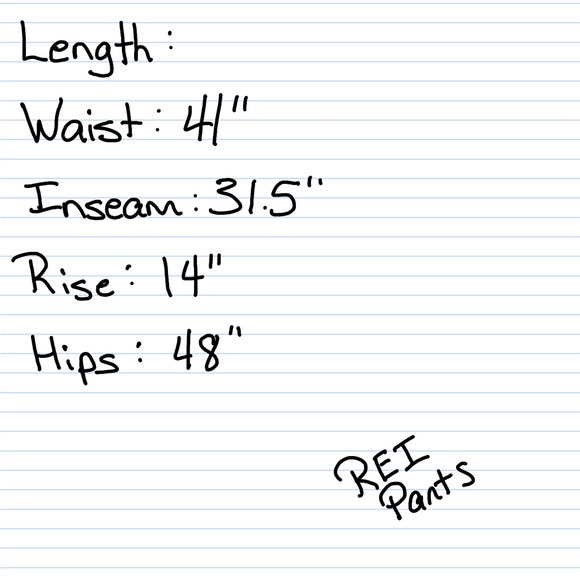 Length:
Waist: 41"
Inseam: 31.5"
Rise: 14"
Hips: 48"
REI
Pants